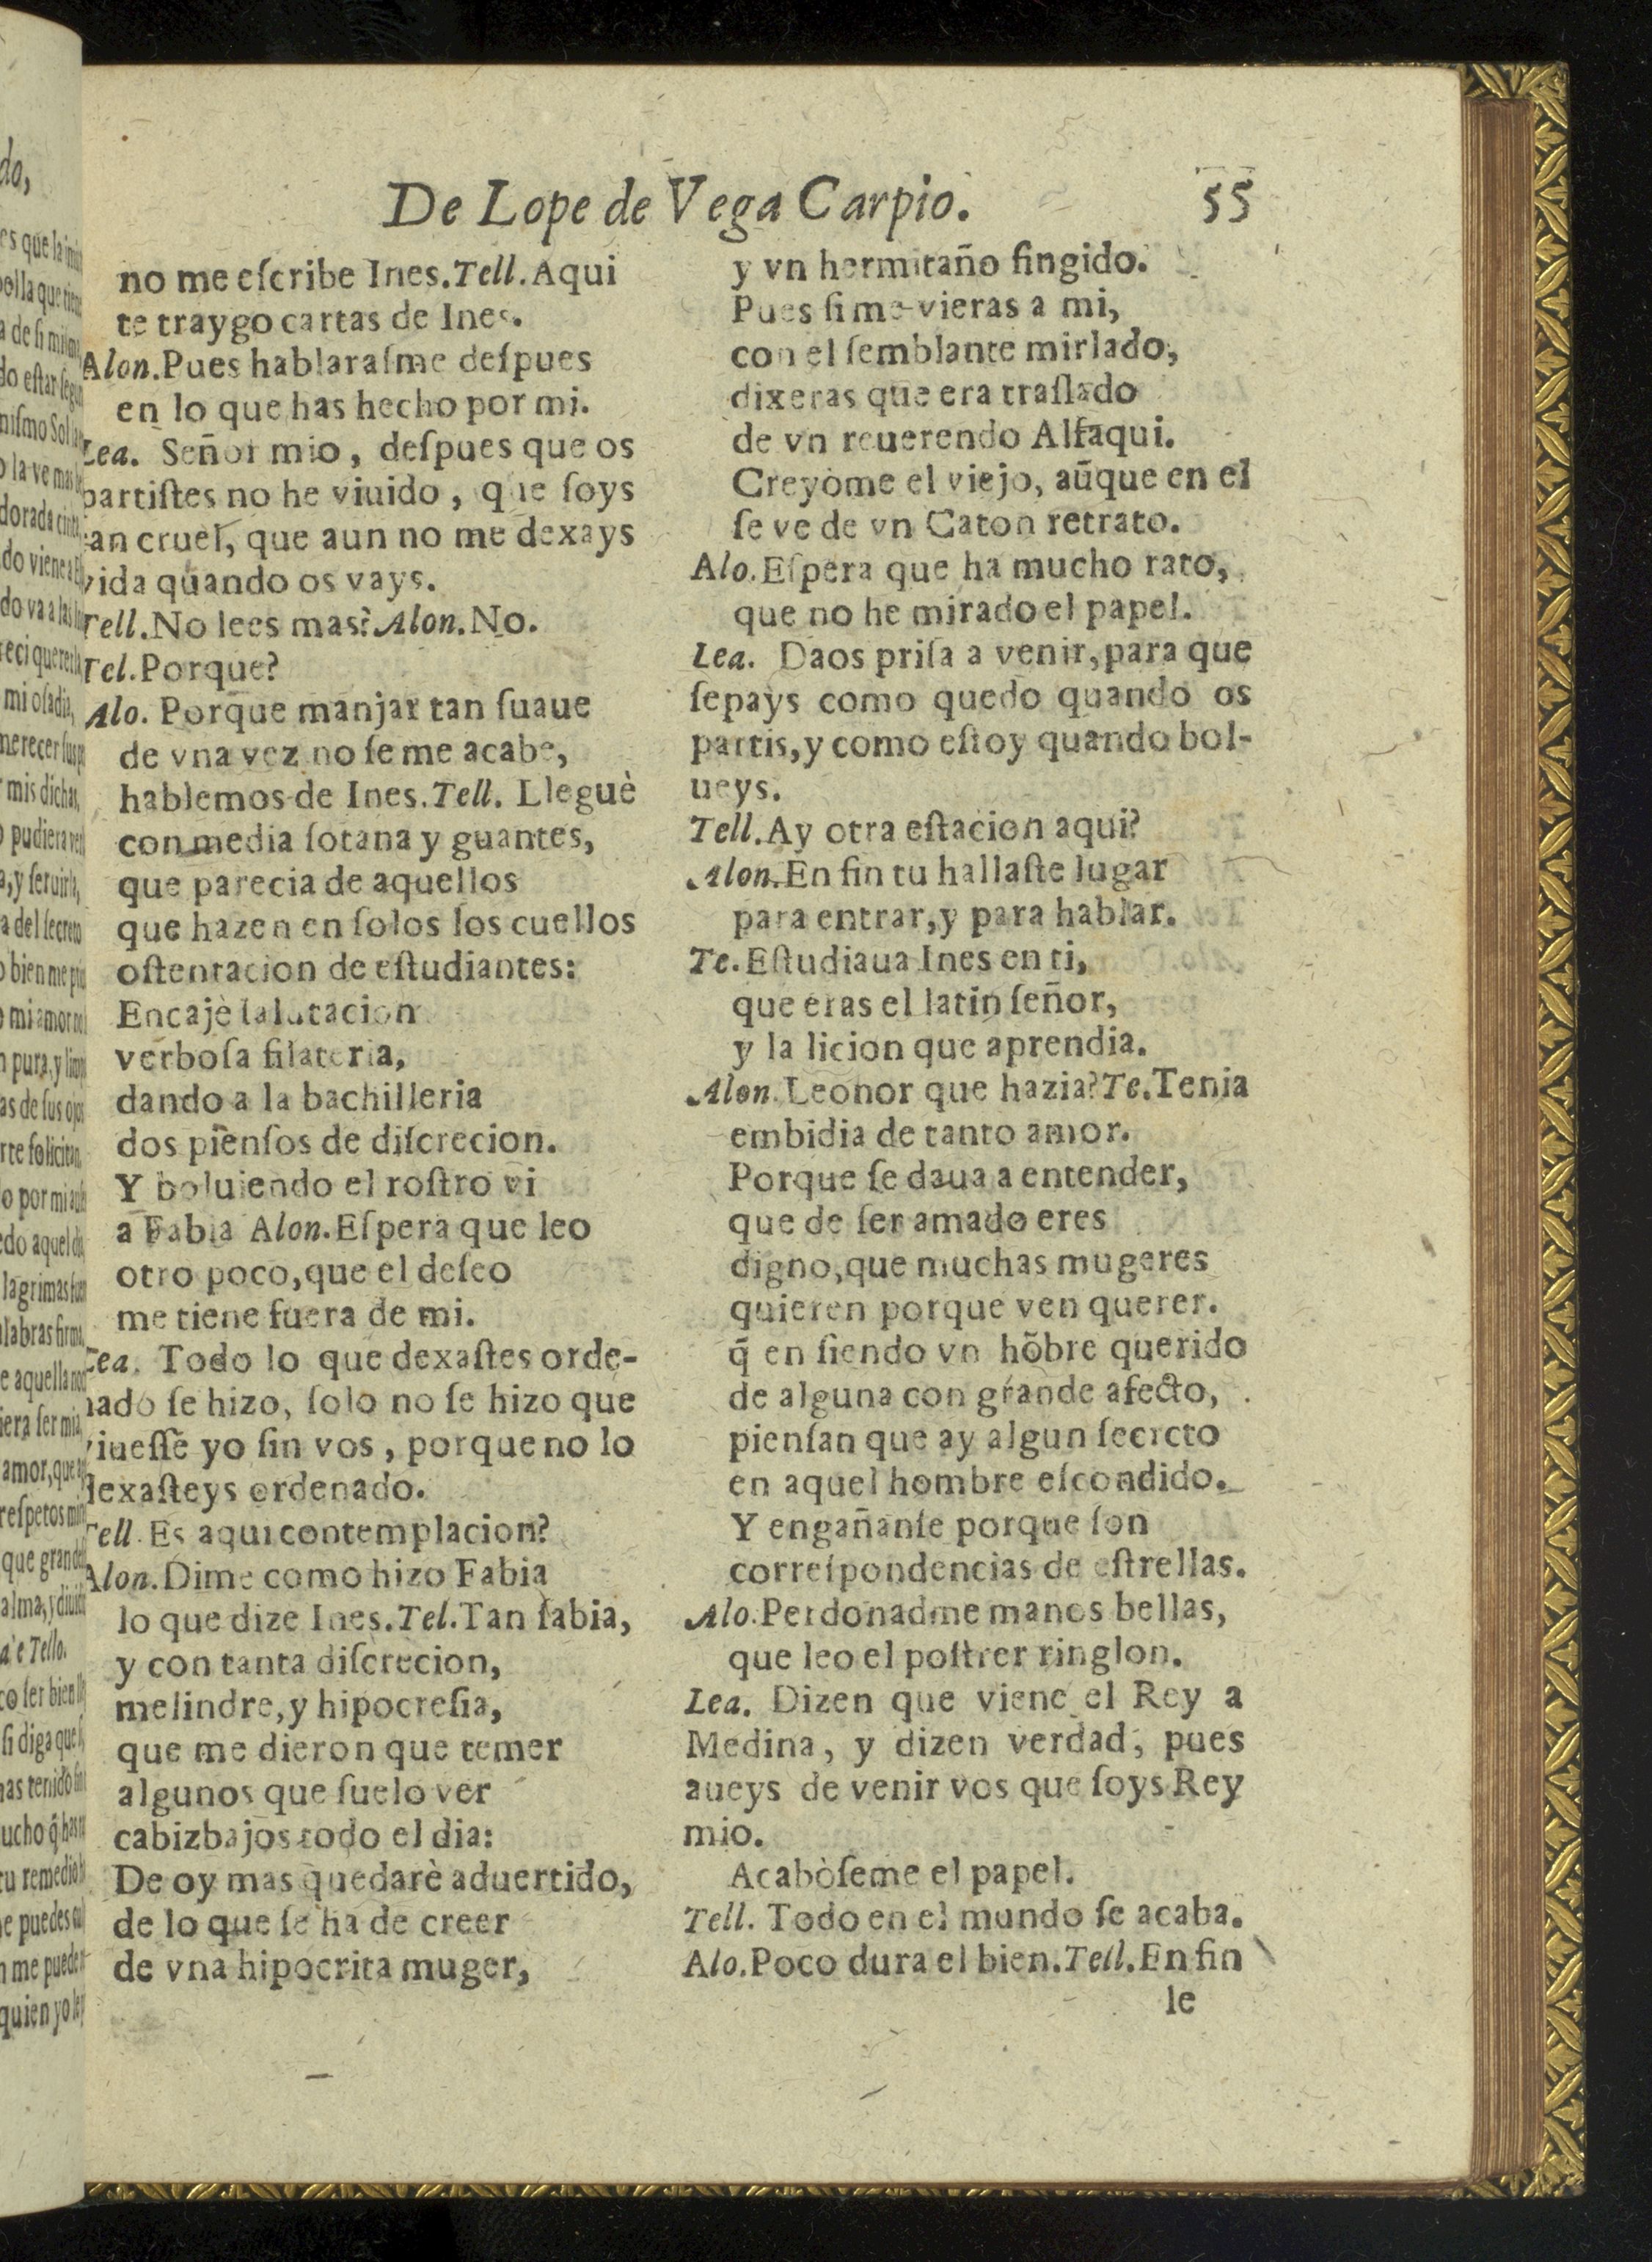 De Lope de Vega Carpio. 55
no me eſcribe Ines. Tell. Aqui
te traygo cartas de Ines.
Alon. Pues hablaraſme deſpues
en lo que has hecho por mi.
Lea. Señor mio, deſpues que os
partiſtes no he viuido, que ſoys
tan cruel, que aun no me dexays
vida quando os vays.
Tell. No lees mas? Alon. No.
Tel. Porque?
Alo. Porque manjar tan ſuaue
de vna vez no ſe me acabe,
hablemos de Ines. Tell. Lleguè
con media ſotana y guantes,
que parecia de aquellos
que hazen en ſolos los cuellos
oſtentacion de eſtudiantes:
Encajè ſalutacion
verboſa filateria,
dando a la bachilleria
dos pienſos de diſcrecion.
Y boluiendo el roſtro vi
a Fabia Alon. Eſpera que leo
otro poco, que el deſeo
me tiene fuera de mi.
Lea. Todo lo que dexaſtes orde-
nado ſe hizo, ſolo no ſe hizo que
viueſſe yo ſin vos, porque no lo
dexaſteys ordenado.
Tell. Es aqui contemplacion?
Alon. Dime como hizo Fabia
lo que dize Ines. Tel. Tan ſabia,
y con tanta diſcrecion,
melindre, y hipocreſia,
que me dieron que temer
algunos que ſuelo ver
cabizbajos todo el dia:
De oy mas quedarè aduertido,
de lo que ſe ha de creer
de vna hipocrita muger,
y vn hermitaño fingido.
Pues ſi me vieras a mi,
con el ſemblante mirlado,
dixeras que era traſlado
de vn reuerendo Alfaqui.
Creyòme el viejo, aũque en el
ſe ve de vn Caton retrato.
Alo. Eſpera que ha mucho rato,
que no he mirado el papel.
Lea. Daos priſa a venir, para que
ſepays como quedo quando os
partis, y como eſtoy quando bol-
ueys.
Tell. Ay otra eſtacion aqui?
Alon. En fin tu hallaſte lugar
para entrar, y para hablar.
Te. Eſtudiaua Ines en ti,
que eras el latin ſeñor,
y la licion que aprendia.
Alon. Leonor que hazia? Te. Tenia
embidia de tanto amor.
Porque ſe daua a entender,
que de ſer amado eres
digno, que muchas mugeres
quieren porque ven querer.
q̃ en ſiendo vn hõbre querido
de alguna con grande afecto,
pienſan que ay algun ſecreto
en aquel hombre eſcondido.
Y engañanſe porque ſon
correſpondencias de eſtrellas.
Alo. Perdonadme manos bellas,
que leo el poſtrer ringlon.
Lea. Dizen que viene el Rey a
Medina, y dizen verdad, pues
aueys de venir vos que ſoys Rey
mio.
Acabòſeme el papel.
Tell. Todo en el mundo ſe acaba.
Alo. Poco dura el bien. Tell. En fin
le